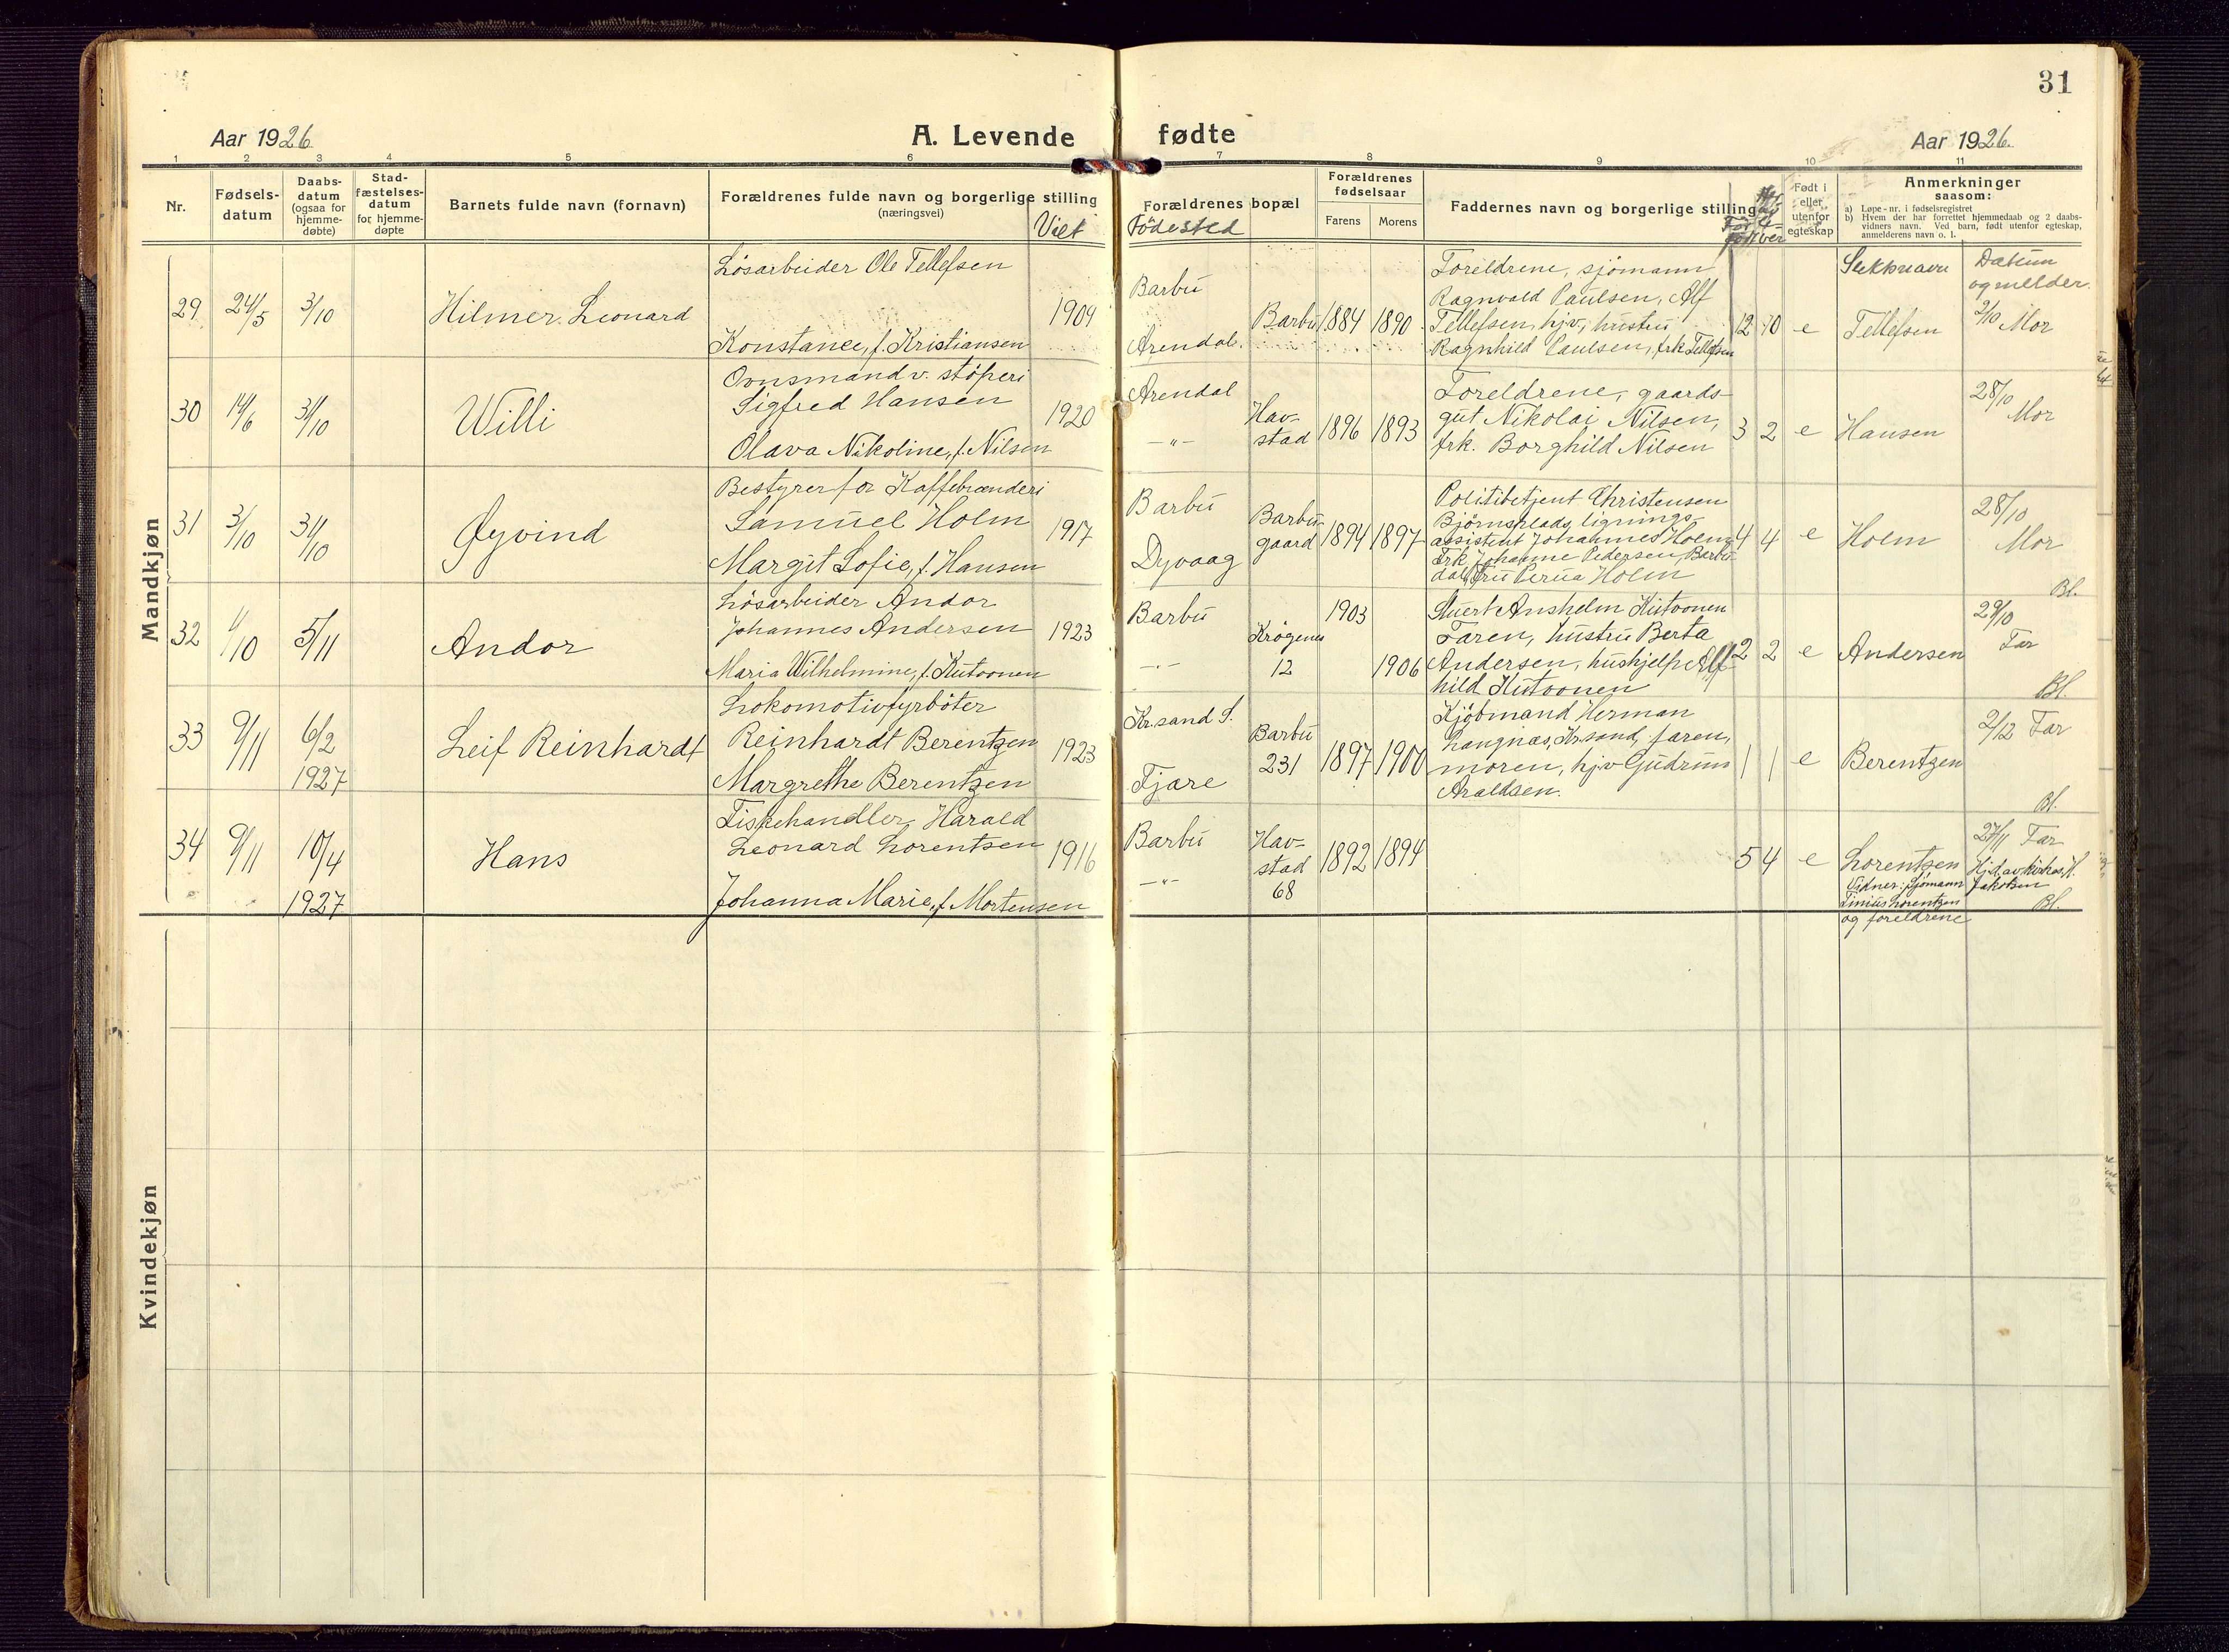 31
Aar 1926
A. Levende fødte
Aar 1926.
1 2 3 4 5 6 7 8 9 10 11
Nr.
Fødsels-
datum
Daabs-
datum
(ogsaa for
hjemme-
døbte)
Stad-
fæstelses-
datum
for hjemme-
døpte
Barnets fulde navn (fornavn)
Forældrenes fulde navn og borgerlige stilling
(næringsvei)
Viet
Forældrenes bopæl
Födested
Forældrenes
fødselsaar
Farens
Morens
Faddernes navn og borgerlige stilling
Født i
eller
utenfor
egteskap
Anmerkninger
saasom:
a) Løpe-nr. i fødselsregistret
b) Hvem der har forrettet hjemmedaab og 2 daabs-
vidners navn. Ved barn, født utenfor egteskap,
anmelderens navn o. l.
Slektsnavn
Datum
og melder.
Mandkjøn
29
24/5
3/10
Hilmer Leonard
Lösarbeider Ole Tellefsen
Konstance, f. Kristiansen
1909
Barbu
Arendal.
Barbu
1884
1890
Foreldrene, sjömann
Ragnvald Paulsen, Alf
Tellefsen, hjv., hustru
Ragnhild Paulsen, frk Tellefsen
12
10
e
Tellefsen
2/10 Mor
30
14/6
31/10
Willi
Ovnsmand v. stöperi
Sigfred Hansen
Olava Nikoline, f. Nilsen
1920
Arendal
—"—
Hav-
stad
1896
1893
Foreldrene, gaards-
gut Nikolai Nilsen,
frk. Borghild Nilsen
3
2
e
Hansen
28/10
Mor
31
3/10
31/10
Øyvind
Bestyrer for Kaffebrænderi
Samuel Holm
Margit Sofie, f. Hansen
1917
Barbu
Dyvaag
Barbu-
gaard
1894
1897
Politibetjent Christensen
Björnsplads, lignings-
assistent Johannes Holm
Frk Johanne Pedersen, Barbu-
dal, Fru Holm
4
4
e
Holm
28/10
Mor
Bl.
32
1/10
5/11
Andor
Lösarbeider Andor
Johannes Andersen
Maria Wilhelmine, f. Kutoonen
1923
Barbu
—"—
Krögenes
12
1903
1906
Anshelm Kutoonen
Faren, hustru Berta
Andersen, hushjelp Alf-
hild Kutoonen
2
2
e
Andersen
29/10
Far
Bl.
33
9/11
6/2
1927
Leif Reinhardt
Lokomotivfyrböter
Reinhardt Berentzen
Margrethe Berentzen
1923
Kr.sand S.
Fjære
Barbu
231
1897
1900
Kjöbmand Herman
Langnas, Kr.sand, faren,
moren, hjv Gudrun
Araldsen.
1
1
e
Berentzen
2/12 Far
Bl.
34
9/11
10/4
1927
Hans
Fiskehandler Harald
Leonard Lorentsen
Johanna Marie, f. Mortensen
1916
Barbu
—"—
Hav-
stad
68
1892
1894
5
4
e
Lorentzen
Vidner: Sjömann
Tinius Lorentzen
og foreldrene
27/11 Far
Hj.d. av
Jakobsen
Bl.
Kvindekjøn